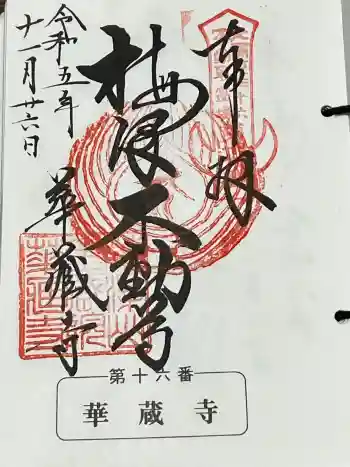 奉拝
梅浪不動尊
華蔵寺
令和五年
十一月廿六日
第十六番
華蔵寺